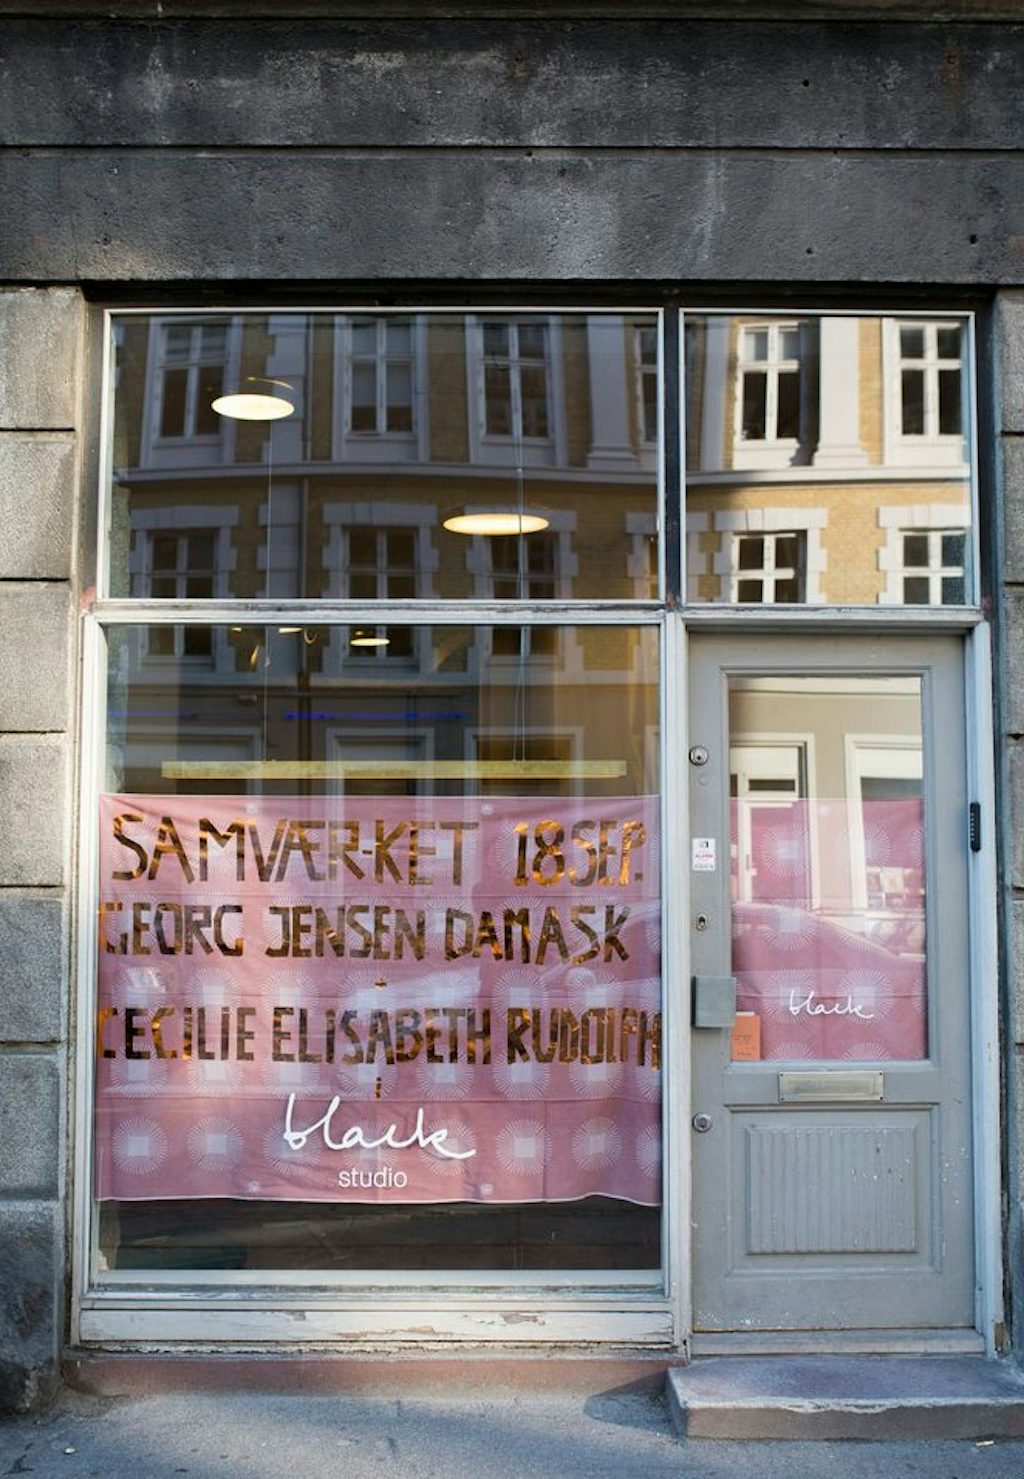 SAMVÆRKET 18 SEP.
GEORG JENSEN DAMASK
CECILIE ELISABETH RUDOLPH
i
black
studio
black